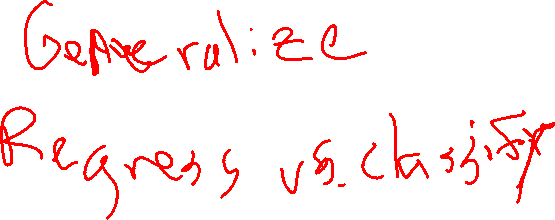 Generalize
Regress vs. classify